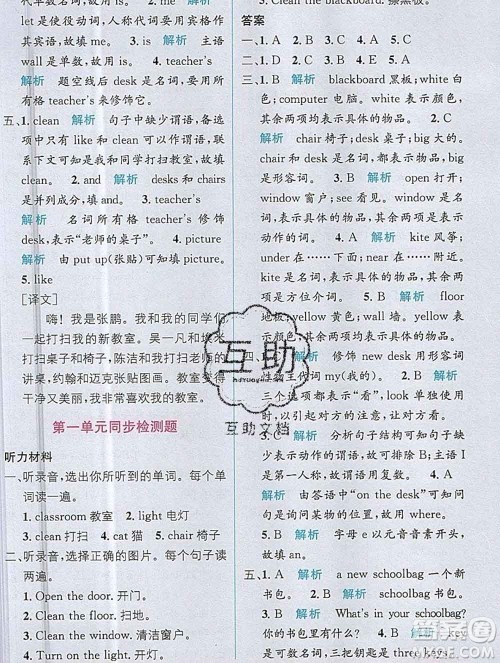 代单数名词，故用 is。人称代词要用宾格作
其宾语，故用 me。 3. is 解析 主语
wall 是单数，故用 is。 4. teacher's
解析 题空线后 desk 是名词，要用所
有格 teacher's 来修饰它。
五、1. clean 解析 句子中缺少谓语，备选
项中只有 like 和 clean 可以作谓语，联
系下文可知是我和同学们打扫教室，故填
clean。 2. and 解析 desks 和 chairs
是并列成分，填 and。 3. teacher's
解析 名词所有格 teacher's 修饰
desk，表示“老师的桌子”。 4. picture
解析 由 put up(张贴)可知，填 picture。
5. like
[译文]
嗨！我是张鹏。我和我的同学们
一起打扫我的新教室。吴一凡和约翰
打扫桌子和椅子，陈洁和我打扫老师的
讲桌，约翰和迈克张贴图画。教室变得
干净又美丽，我非常喜欢我的教室。
第一单元同步检测题
听力材料
一、听录音，选出你所听到的单词。每个单
词读一遍。
1. classroom 教室 2. light 电灯
3. clean 打扫 4. cat 猫 5. chair 椅子
二、听录音，选择正确的图片。每个句子读
两遍。
1. Open the door. 开门。
2. Clean the floor. 扫地。
3. Clean the window. 清洁窗户。
4. Turn on the light. 开灯。
答案
一、1. A 2. A 3. B 4. A 5. A
二、1. B 2. A 3. C 4. A 5. C
三、1. B 解析 blackboard 黑板；white 白
色；computer 电脑。white 表示颜色，
其余两项均表示具体的物品。 2. B
解析 chair 椅子；desk 桌子；big 大的。
chair 和 desk 都表示物品，是名词，big
是形容词。 3. B 解析 open 打开；
window 窗户；see 看见。window 表示
具体的物品，是名词，其余两项均表示
动作的词。 4. A 解析 kite 风筝；
under 在……下面；near 在……附近。
kite 是名词，表示具体的物品，其余两项
是表示方位的介词。 5. B 解析 floor
地板；yellow 黄色；wall 墙。yellow 表示
颜色，其余两项均表示具体的物品。
四、 解析 修饰 new desk 用形容词
性物主代词 my(我的)。 2. A 解析
see 表示“看见”，看的结果，look 单独使用
时，表示看的动作。 3. B 解析 主语
I 是第一人称，故谓语用 have。 4. A
解析 分析句子结构可知句中缺少谓语，
故排除B和C，故选A。 5. B
解析 由答语中“on the desk”可知问
句是询问某物的位置，故应用 where。
6. B 解析 字母 e 以元音音素开头，
故填 an。
五、1. A 解析 a new schoolbag 一个新
书包。 2. C 解析 schoolbag 书包。
3. B 解析 What's in your schoolbag?
你的书包里有什么？ 4. C 解析 key
的复数形式是 keys，三把钥匙是 three keys。
互助
互助文档